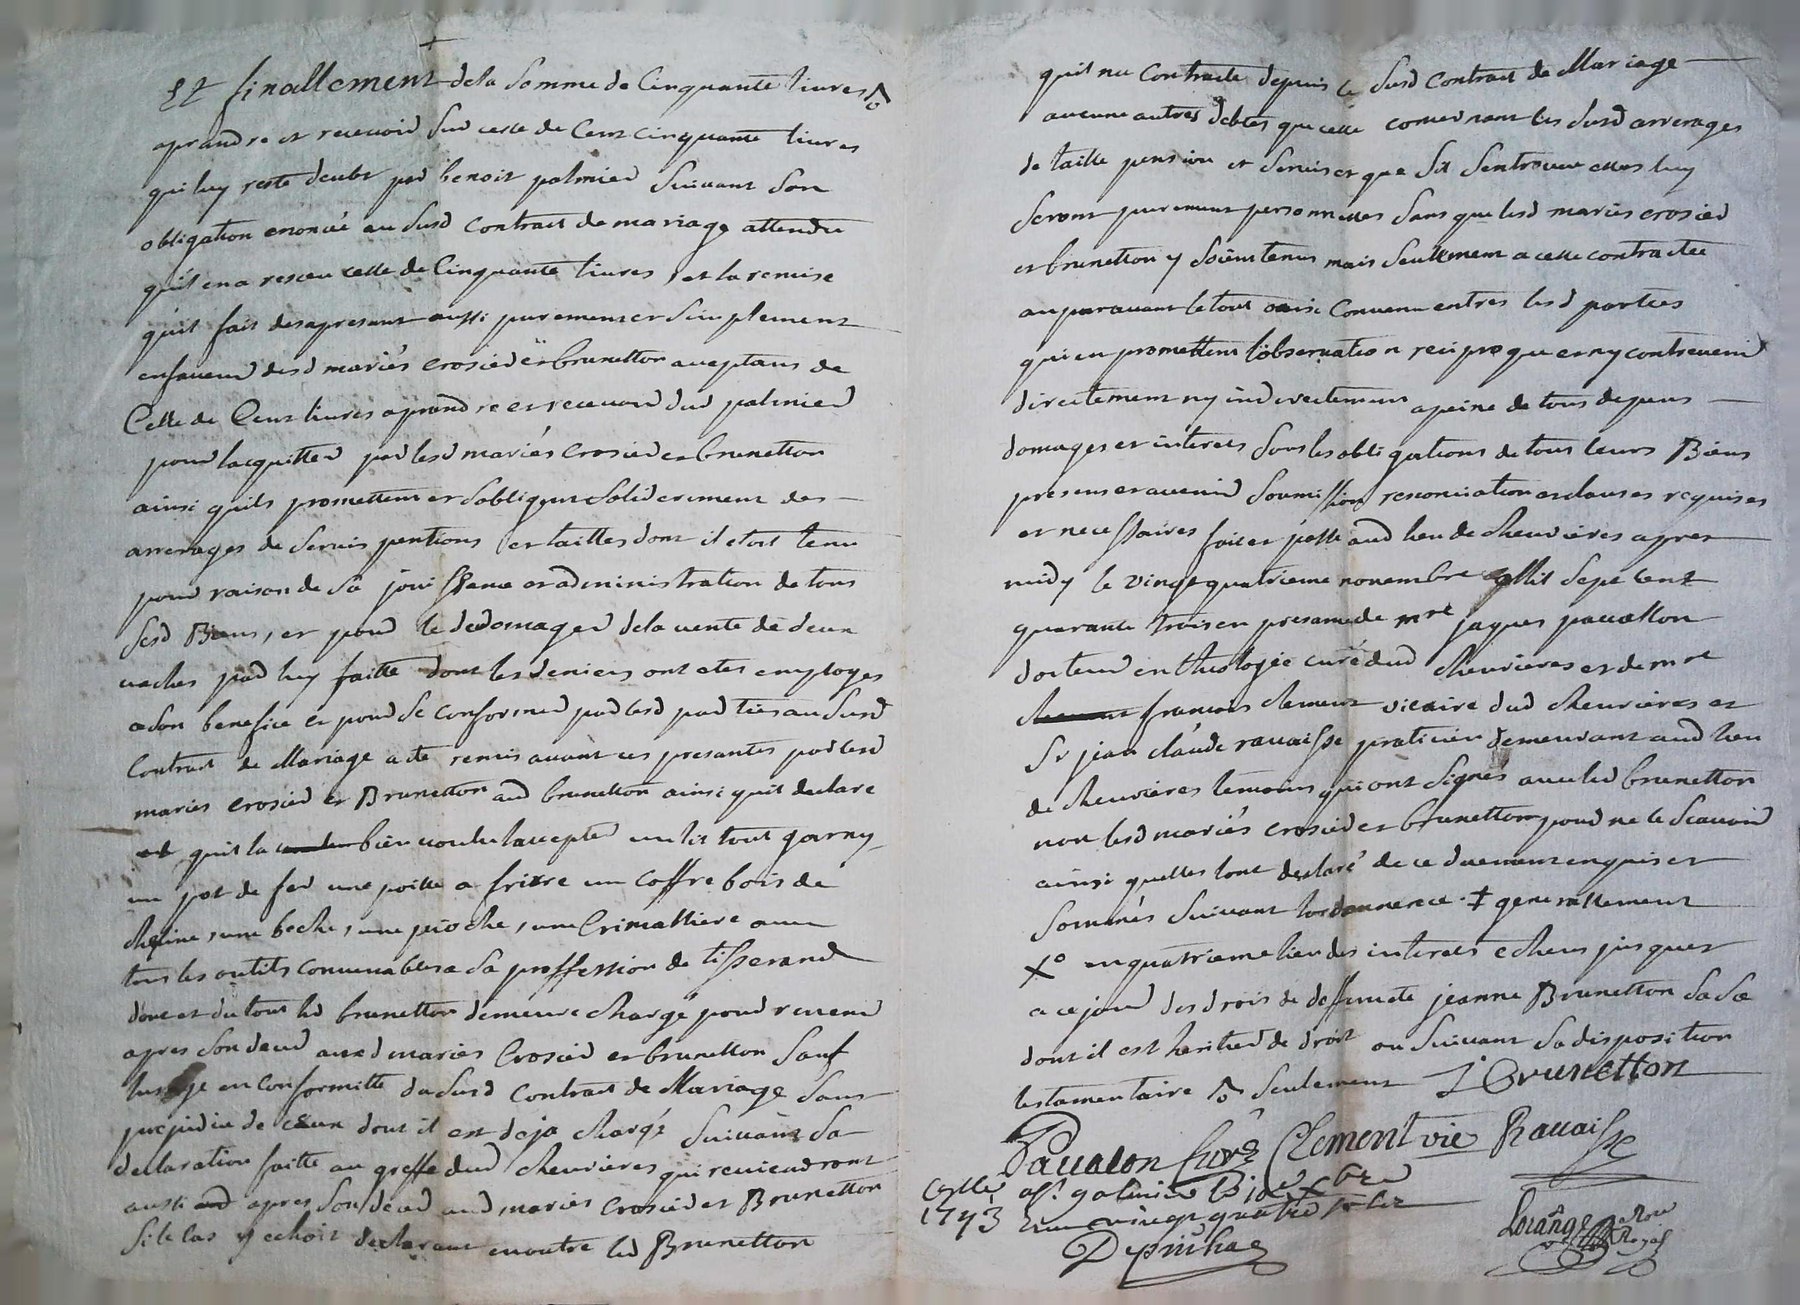 Et finallement dela Somme de Cinquante livres
aprandre et recevoir Sur celle de Cent cinquante livres
qui luy reste deubt par benoit palmier Suivant Son
obligation enoncée au Susd contract de mariage attendu
quil en a resceu celle de Cinquante livres et la remise
quil fait desapresant aussi purement et Simplement
enfaveur desd mariés crosier et brunetton acceptans de
Celle de Cent livres aprandre et recevoir dud palmier
pour lacquitter par lesd mariés Crosier et brunetton
ainsi quils promettent et Sobligent Solidairement des
arrerages de Servis pentions et tailles dont il etoit tenu
pour raison de Sa jouissance et administration de tous
Sesd Biens, et pour le dedomager dela vente de deux
vaches par luy faitte dont les deniers ont etes employes
a Son benefice et pour Se conformer par lesd parties au Susd
Contract de Mariage a ete remis avant ces presantes par lesd
maries crosier et Brunetton aud brunetton ainsi quil declare
quil la bien voulu laccepter un lit tout garny
un pot de fer une poille a frixre un coffre bois de
chesne, une beche, une pioche, une Crimalliere avec
tous les outils convenables a Sa proffession de tisserand
dont et du tout led brunetton demeure chargé pour revenir
apres Son deced auxd maries Crosier et brunetton Sauf
lusage en conformitté du Susd Contract de Mariage Sans
prejudice de ceux dont il est deja chargé Suivant Sa
declaration faitte au greffe dud chevrieres qui reviendront
aussi apres Son deced aud maries Crosier et Brunetton
Si le cas y echoit declarant enoutre led Brunetton
quil na Contracté depuis le Susd Contract de Mariage
aucune autres debtes que celle concernant les Susd arrerages
de taille pension et Servis et que Sil Sentrouve elles luy
Seront purement personnelles Sans que lesd mariés crosier
et brunetton y Soient tenus mais Seullement a celle contractée
auparavant le tout ainsi Convenu entres lesd parties
qui en promettent lobservation reciproque et ny contrevenir
directement ny indirectement apeine de tous depens
domages et interets Sous les obligations de tous leurs Biens
presens et avenir Soumission renonciation et clauses requises
et necessaires fait et passé aud lieu de chevrieres apres
midy le vingt quatrieme novembre Mil Sept cent
quarante trois en presance de mre jaques pavallon
docteur en theologie curé dud chevrieres et de mre
francois clement vicaire dud chevrieres et
Sr jean claude ravaisse praticien demeurant aud lieu
de chevrieres temoins qui ont Signés avec led brunetton
non lesd mariés crosier et brunetton pour ne le Scavoir
ainsi quelles lont declaré de ce duement enquis et
Sommés Suivant lordonnance. ‡ generallement
Xo en quatrieme lieu des interets echeus jusques
a ce jour des drois de deffuncte jeanne Brunetton Sa
dont il est heritier de droit ou Suivant Sa disposition
testamentaire Seulement J Brunetton
Pavalon Curé Clement vic Ravaisse
1743 vingt quatre
Depinhac
Lorange Royal